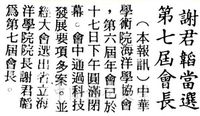 謝君韜當選
第七屆會長
（本報訊）中華
學術院海洋學協會
，第六屆年會已於
十七日下午圓滿閉
幕。會中通過科技
發展要項多案。並
經大會選出省立海
洋學院院長謝君韜
為第七屆會長。